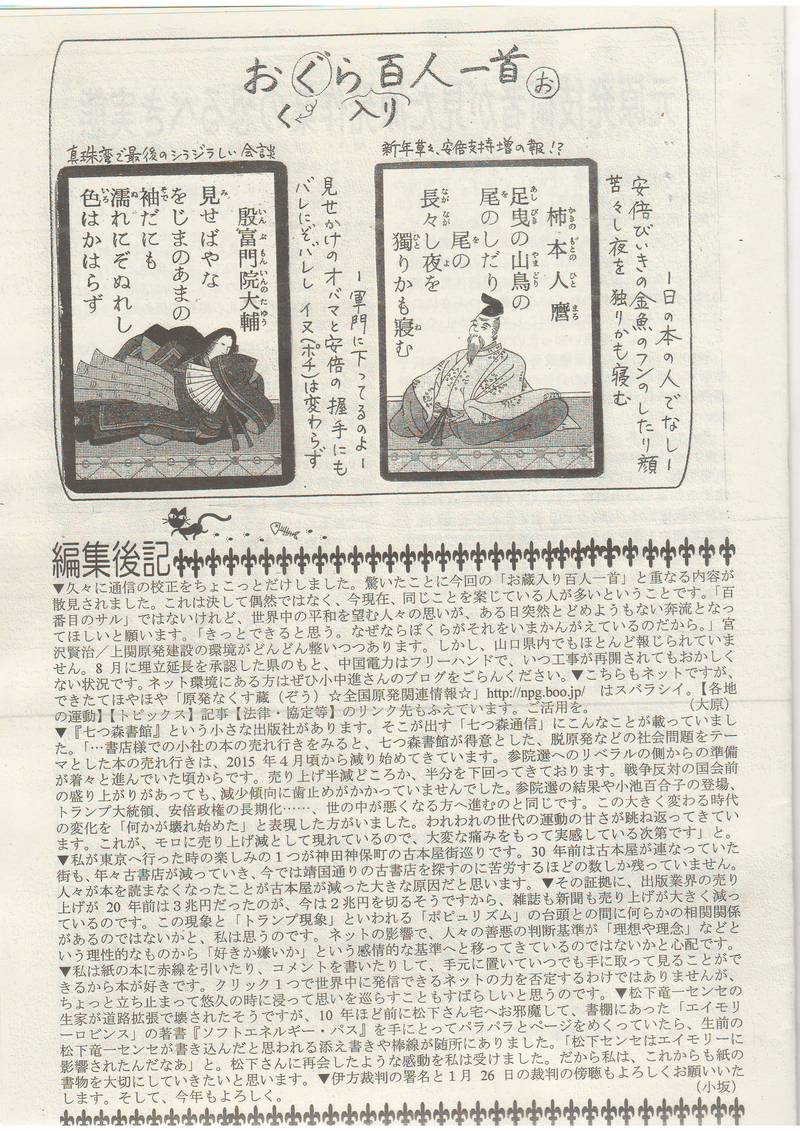 おぐら百人一首 お
く 入り
新年草々、安倍支持増の報!?
―日の本の人でなし―
安倍びいきの金魚のフンのしたり顔
苦々し夜を 独りかも寝む
柿本人麿
かきの もとの ひと まろ
足曳の山鳥の
あし びき やま どり
尾のしだり
を
尾の
を
長々し夜を
なが なが よ
獨りかも寢む
ひと ね
真珠湾で最後のシラジラしい会談
―軍門に下ってるのよ―
見せかけのオバマと安倍の握手にも
バレにぞバレし イヌ(ポチ)は変わらず
殷富門院大輔
いんぶもんいんのたゆう
見せばやな
み
をじまのあまの
袖だにも
そで
濡れにぞぬれし
ぬ
色はかはらず
いろ
編集後記
▼久々に通信の校正をちょこっとだけしました。驚いたことに今回の「お蔵入り百人一首」と重なる内容が
散見されました。これは決して偶然ではなく、今現在、同じことを案じている人が多いということです。「百
番目のサル」ではないけれど、世界中の平和を望む人々の思いが、ある日突然とどめようもない奔流となっ
てほしいと願います。「きっとできると思う。なぜならぼくらがそれをいまかんがえているのだから。」宮
沢賢治／上関原発建設の環境がどんどん整いつつあります。しかし、山口県内でもほとんど報じられていま
せん。8月に埋立延長を承認した県のもと、中国電力はフリーハンドで、いつ工事が再開されてもおかしく
ない状況です。ネット環境にある方はぜひ小中進さんのブログをごらんください。▼こちらもネットですが、
できたてほやほや「原発なくす蔵（ぞう）☆全国原発関連情報☆」http://npg.boo.jp/ はスバラシイ。【各地
の運動】【トピックス】記事【法律・協定等】のリンク先もふえています。ご活用を。 （大原）
▼『七つ森書館』という小さな出版社があります。そこが出す「七つ森通信」にこんなことが載っていまし
た。「…書店様での小社の本の売れ行きをみると、七つ森書館が得意とした、脱原発などの社会問題をテー
マとした本の売れ行きは、2015年4月頃から減り始めてきています。参院選へのリベラルの側からの準備
が着々と進んでいた頃からです。売り上げ半減どころか、半分を下回ってきております。戦争反対の国会前
の盛り上がりがあっても、減少傾向に歯止めがかかっていませんでした。参院選の結果や小池百合子の登場、
トランプ大統領、安倍政権の長期化……、世の中が悪くなる方へ進むのと同じです。この大きく変わる時代
の変化を「何かが壊れ始めた」と表現した方がいました。われわれの世代の運動の甘さが跳ね返ってきてい
ます。これが、モロに売り上げ減として現れているので、大変な痛みをもって実感している次第です」と。
▼私が東京へ行った時の楽しみの１つが神田神保町の古本屋街巡りです。30年前は古本屋が連なっていた
街も、年々古書店が減っていき、今では靖国通りの古書店を探すのに苦労するほどの数しか残っていません。
人々が本を読まなくなったことが古本屋が減った大きな原因だと思います。▼その証拠に、出版業界の売り
上げが20年前は３兆円だったのが、今は２兆円を切るそうですから、雑誌も新聞も売り上げが大きく減っ
ているのです。この現象と「トランプ現象」といわれる「ポピュリズム」の台頭との間に何らかの相関関係
があるのではないかと、私は思うのです。ネットの影響で、人々の善悪の判断基準が「理想や理念」などと
いう理性的なものから「好きか嫌いか」という感情的な基準へと移ってきているのではないかと心配です。
▼私は紙の本に赤線を引いたり、コメントを書いたりして、手元に置いていつでも手に取って見ることがで
きるから本が好きです。クリック１つで世界中に発信できるネットの力を否定するわけではありませんが、
ちょっと立ち止まって悠久の時に浸って思いを巡らすこともすばらしいと思うのです。▼松下竜一センセの
生家が道路拡張で壊されたそうですが、10年ほど前に松下さん宅へお邪魔して、書棚にあった「エイモリ
ーロビンス」の著書『ソフトエネルギー・パス』を手にとってパラパラとページをめくっていたら、生前の
松下竜一センセが書き込んだと思われる添え書きや棒線が随所にありました。「松下センセはエイモリーに
影響されたんだなあ」と。松下さんに再会したような感動を私は受けました。だから私は、これからも紙の
書物を大切にしていきたいと思います。▼伊方裁判の署名と1月26日の裁判の傍聴もよろしくお願いいた
します。そして、今年もよろしく。 （小坂）